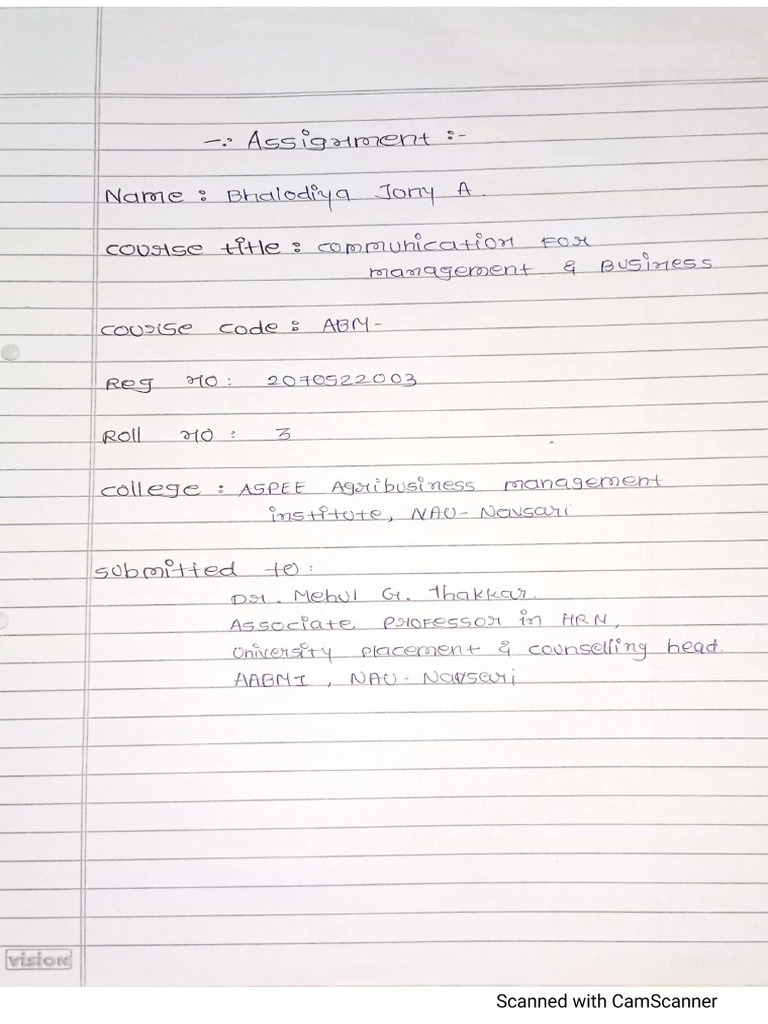 -:- Assignment :-
Name : Bhalodiya Jony A.
course title : communication FOR
management & Business
course code : ABM-
Reg no : 2070522003
Roll no : 3
college : ASPEE Agribusiness management
institute, NAU- Navsari
submitted to :
Dr. Mehul G. Thakkar.
Associate professor in HRM,
University placement & counselling head.
AABMI, NAU- Navsari
vision
Scanned with CamScanner